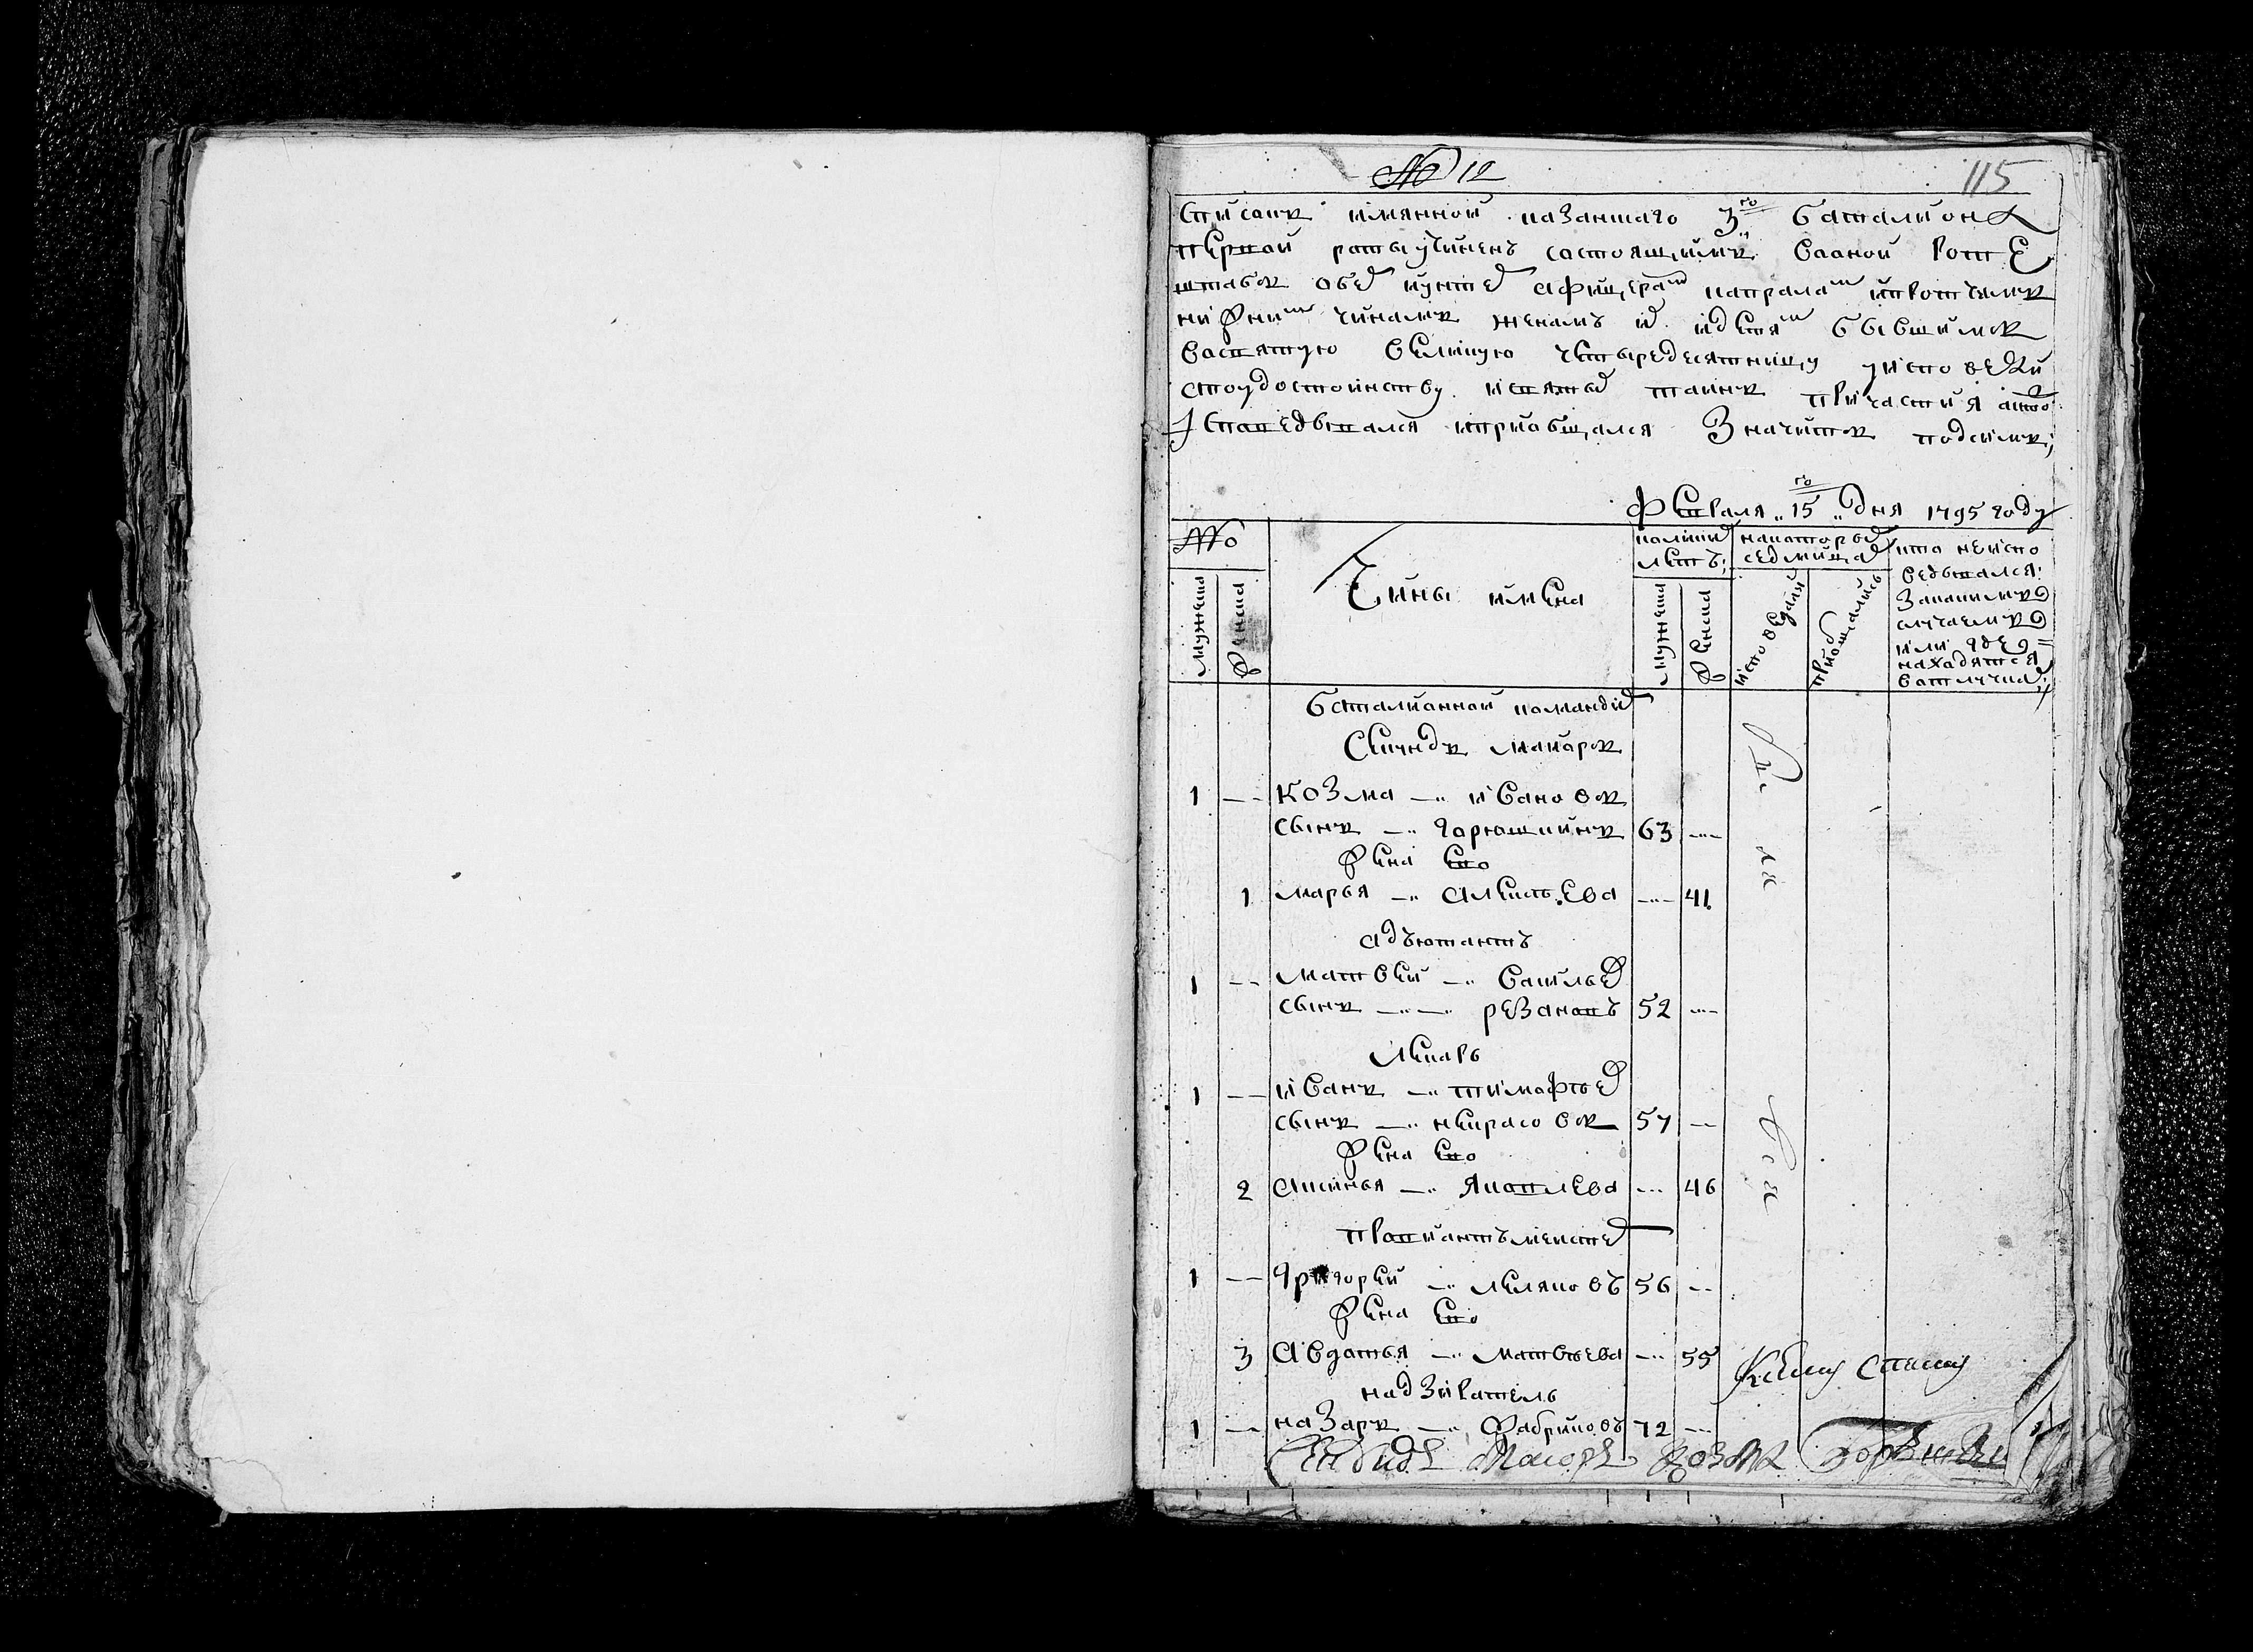 № 12
115
Список имянной казанцаго 3го баталиона
первой роты учинень состоящимъ воной роте
штабъ обер иунтер афицерам капралам ипротчимъ
нижним чинамъ женамъ и идетям бывшимъ
восвятую великую четыредесятницу уисповеди
споудостоинству исвятых таинъ причастия акто
исповедывался иприобщался значитъ подсимъ;
Февраля 15го дня 1795 году
№
мужеска
женска
Чины имена
коликих летъ;
мужеска
женска
накоторой седмице
исповедаля
приобщались
кто неиспо
ведывался
закакимъ
случаемъ
или где
находятся
вотлучке
баталионной командир
Секундъ маиоръ
1 Козма ивановъ
сынъ горюшкинъ 63
жена ево
1 марья алексеева 41
адъютантъ
1 матвей василье
сынъ резановъ 52
лекарь
1 иванъ тимофее
сынъ некрасовъ 57
жена ево
2 аксинья яковлева 46
правиантъмейстер
1 григорей меляковъ 56
жена ево
3 Авдотья матвеева 55
надзиратель
1 назаръ фабриковъ 72
были
вся
Ксему списку
Секундъ Маиоръ Козма Горюшкин